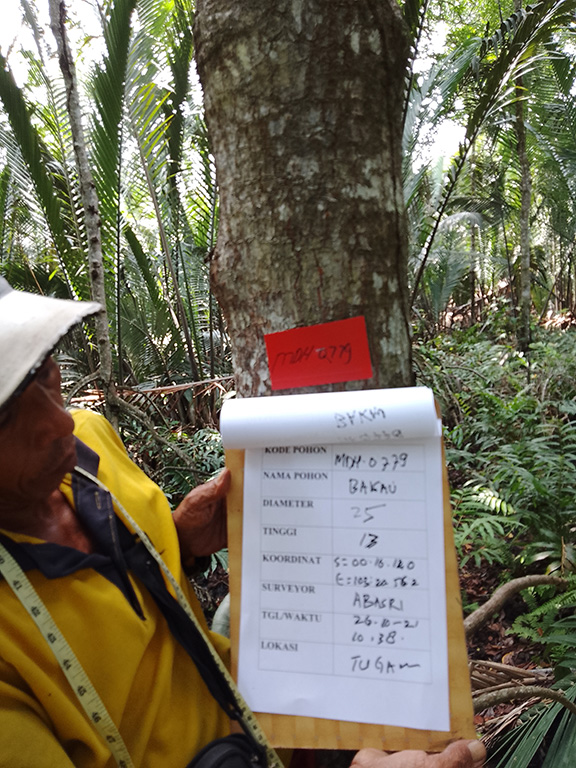 MDH-0779
BAKAU
KODE POHON MDH-0779
NAMA POHON BAKAU
DIAMETER 25
TINGGI 13
KOORDINAT S=00.16.120
E=103.20.562
SURVEYOR ABASRI
TGL/WAKTU 26-10-21
10.38.
LOKASI